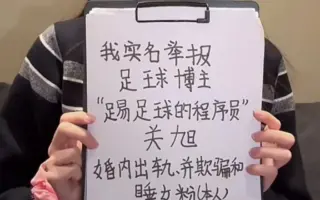 我实名举报
足球博主
“踢足球的程序员”
关旭
婚内出轨、并欺骗和
睡女粉(本人)